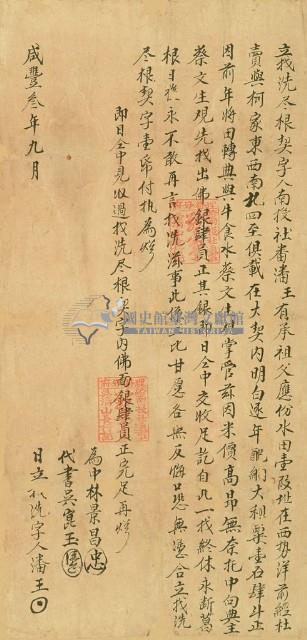 立找洗尽根契字人南投社番潘王有承祖父應份水田壹叚址在西勢洋前經杜
賣與柯家東西南北四至俱載在大契內明白逐年配納大租粟壹石肆斗正
因前年將田轉典與牛食水蔡文生掌管茲因米價高昂無奈托中向典主
蔡文生現先找出佛銀肆員正其銀即日仝中交收足訖自此一找終休永断葛
根日后永不敢再言找洗滋事此係二比甘愿各無反悔口恐無憑合立找洗
尽根契字壹帋付执為炤
即日仝中見收過找洗尽根契字內佛面銀肆員正完足再炤
為中林景昌
代書吳寬玉
日立找洗字人潘王
咸豐叁年九月
國史館臺灣文獻館